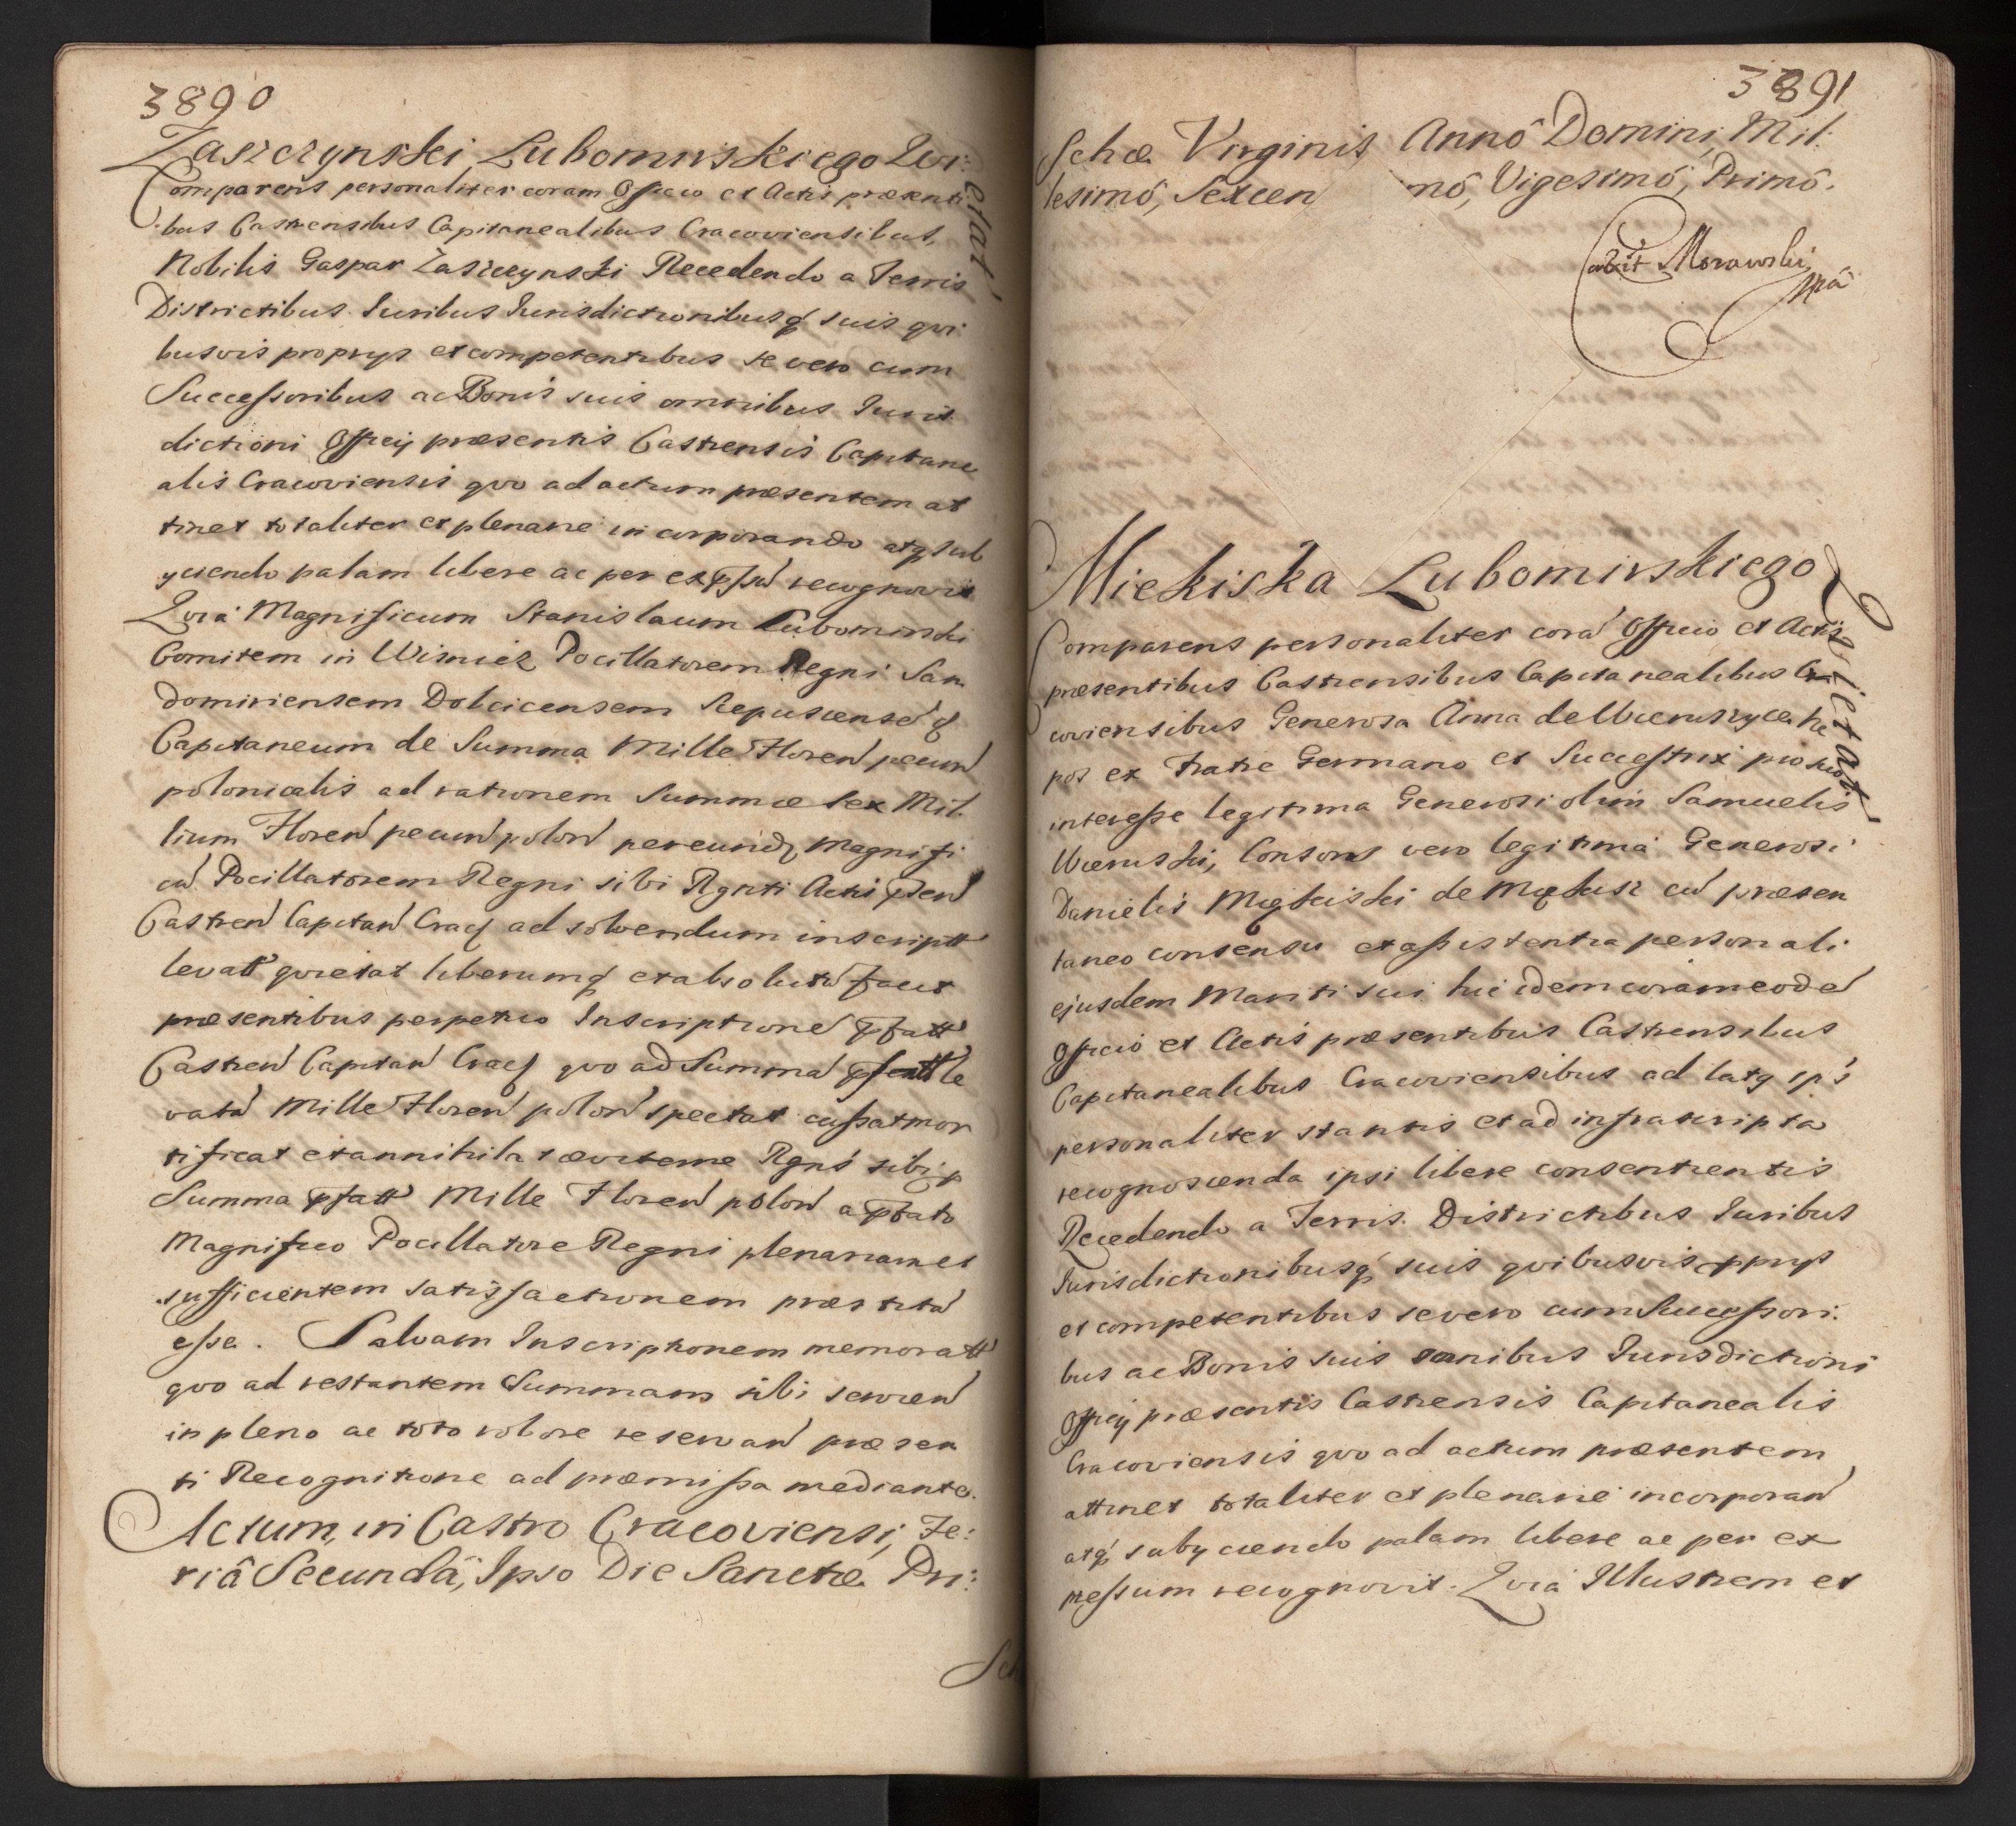 3890
Zaszczynski Lubomirskiego Qvi:
etat
Comparens personaliter coram Officio et Actis præsenti
bus Castrensibus Capitanealibus Cracoviensibus,
Nobilis Gaspar Zaszczynski Recedendo a Terris
Districtibus Iuribus Iurisdictionibusq́ suis qvi
busvis proprys et competentibus se vero cum
Successoribus ac Bonis suis omnibus Iuris
dictioni Officÿ præsentis Castrensis Capitane
alis Cracoviensis qvo ad actum præsentem at
tinet totaliter et plenarie in corporando atq́ sub
yciendo palam libere ac per exp̄ssū recognovit
Qvia Magnificum Stanislaum Lubomirski
Comitem in Wisnicz Pocillatorem Regni San
domiriensem Dobcicensem Scepusiensēq́
Capitaneum de Summa Mille Floren̄ pecun̄
polonicalis ad rationem Summæ Sex Mil
lium Floren̄ pecun̄ polon̄ per eundē Magnifi
cū Pocillatorem Regni sibi Rgnti Actis p̄sen̄
Castren̄ Capitan̄ Crac̄ ad solvendum inscriptt
levatt qvietat liberumq́ et absolutū facit
præsentibus perpetuo Inscriptionē p̄fatt
Castren̄ Capitan̄ Crac̄ qvo ad Summā p̄sentt le
vatā Mille Floren̄ polon̄ spectat cassat mor
tificat et annihilat ævit erne Rgns sibi p̄
Summa p̄fatt Mille Floren̄ polon̄ a p̄fato
Magnifico Pocillatore Regni plenariam et
sufficientem satisfactionem præstitā
esse. Salvam Inscriptionem memoratt
qvo ad restantem Summam sibi servien̄
in pleno ac toto robore reservan̄ præsen
ti Recognitione ad præmissa mediante.
Actum, in Castro Cracoviensi, Fe:
riâ Secundâ, Ipso Die Sanctæ Pri:
Sch
3891
schæ Virginis Annô Domini, Mil:
lesimô, Sexcen nô, Vigesimô, Primô.
abit Morawski
mpâ
Miekiska Lubomirskiego
Qvietat
Comparens personaliter corā Officio et Actis
præsentibus Castrensibus Capitanealibus Cra
coviensibus Generosa Anna de Wieruszyce Ne
pos ex Fratre Germano et Successtrix pro suo
interesse legitima Generosi olim Samuelis
Wieruski, Consors vero legitima Generosi
Danielis Miękiski de Miękisz cū præsen
taneo consensu et assistentia personali
ejusdem Mariti sui hic idem coram eodē
Officio et Actis præsentibus Castrensibus
Capitanealibus Cracoviensibus ad latq ip̄s
personaliter stantis et ad infrascripta
recognoscenda ipsi libere consentientis
Recedendo a Terris Districtibus Iuribus
Iurisdictionibusq́ suis qvibusvis pprys
et competentibus se vero cum Successori:
bus ac Bonis suis omnibus Iurisdictioni
Officÿ præsentis Castrensis Capitanealis
Cracoviensis qvo ad actum præsentem
attinet totaliter et plenarie incorporan̄
atq́ subyciendo palam libere ac per ex
pressum recognovit. Qvia Illustrem et